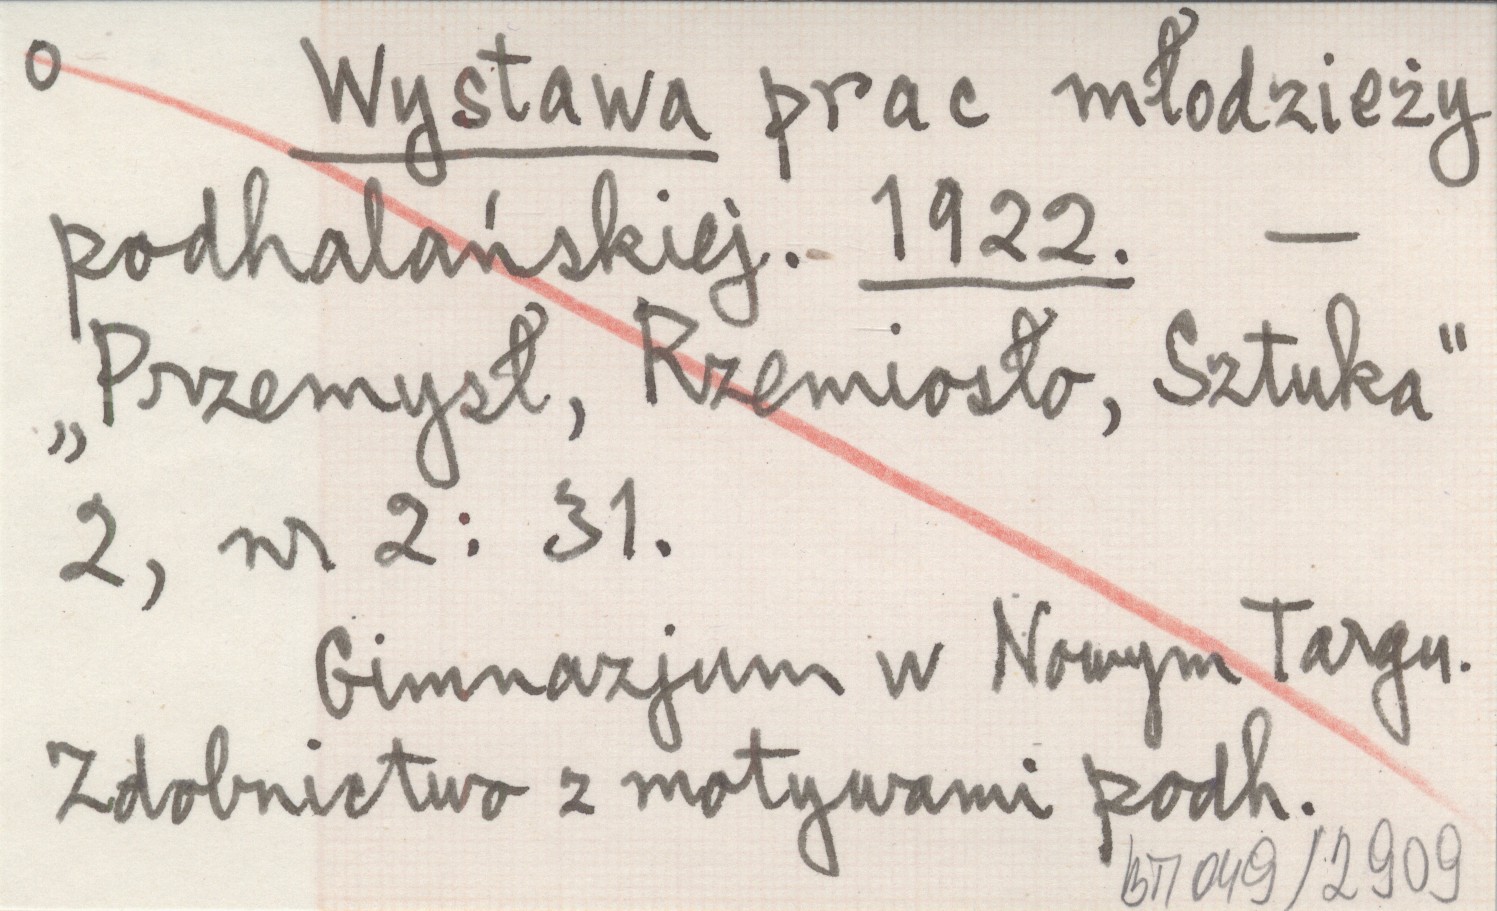 o Wystawa prac młodzieży
podhalańskiej. 1922. —
„Przemysł, Rzemiosło, Sztuka"
2, nr 2: 31.
Gimnazjum w Nowym Targu.
Zdobnictwo z motywami podh.
049/2909